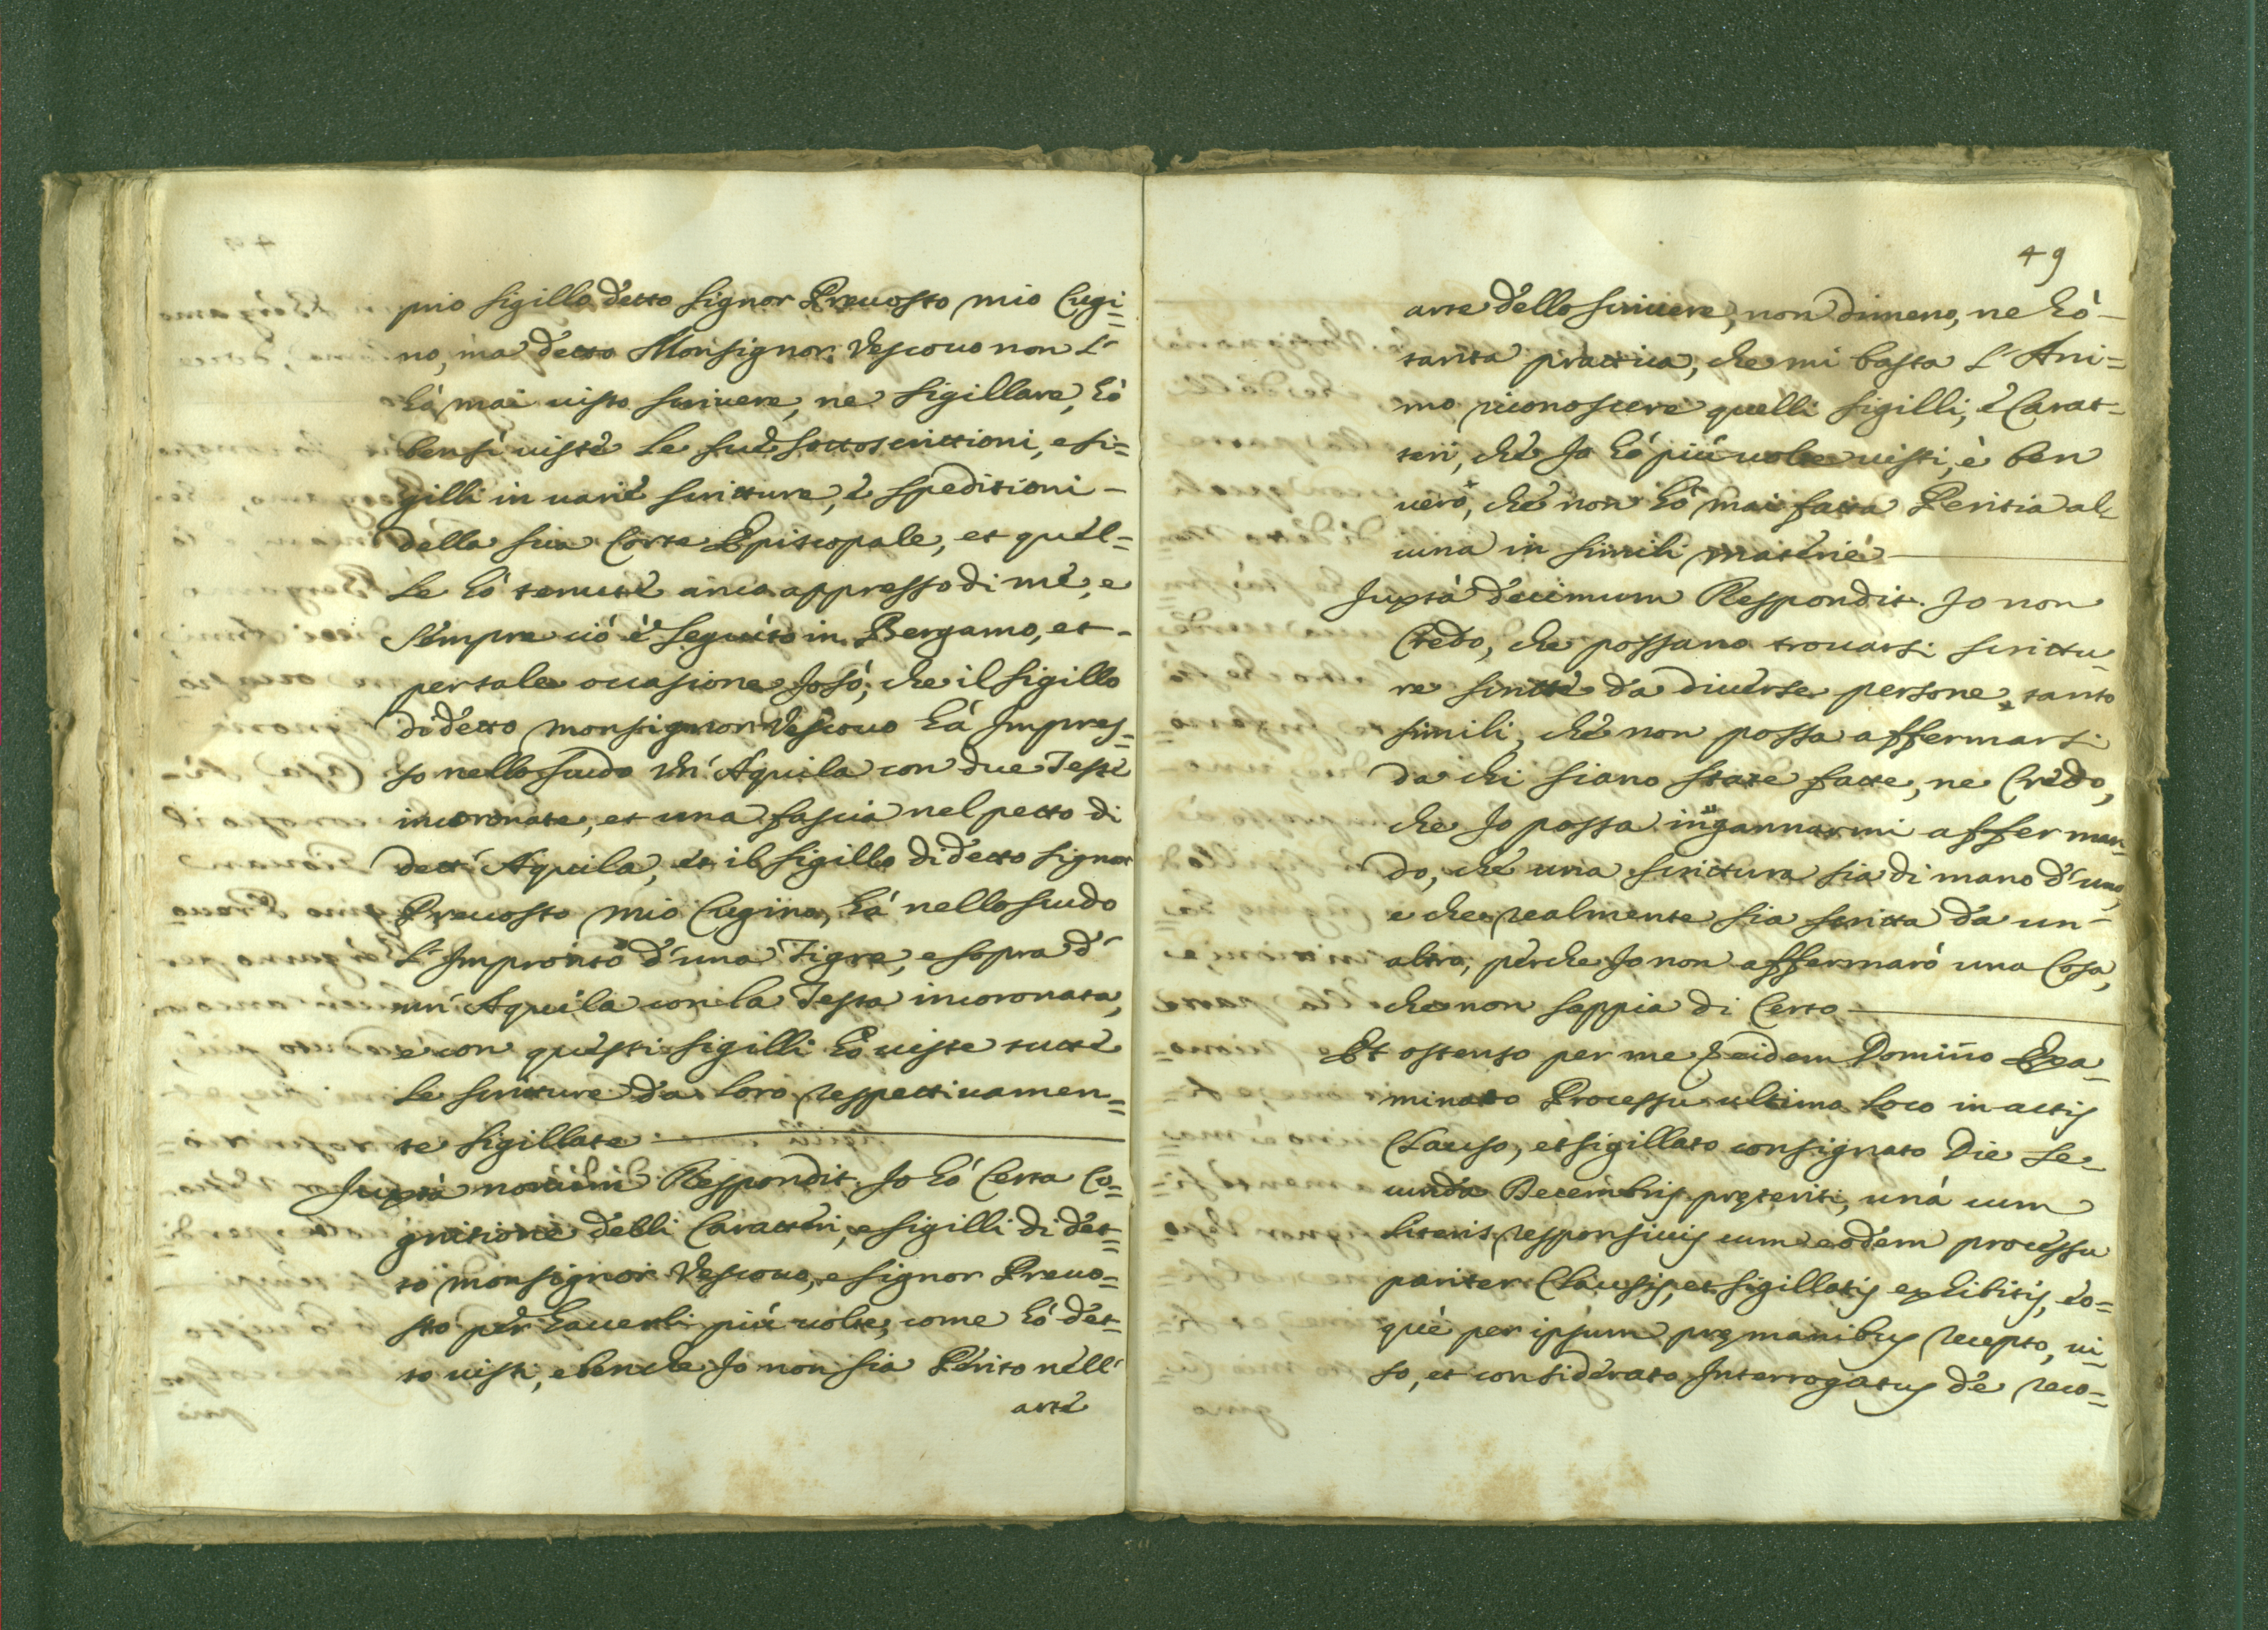 prio sigillo detto Signor Preuosto mio Cugi=
no, ma detto Monsignor Vescouo non l'
hò mai uisto scriuere, ne sigillare, hò
bensì uisté le sué sottoscrittioni, e si=
gilli in uarié scritture, é speditioni -
della sua Corte Episcopale, et quel=
le hò tenuté anco appresso di mé, e
sempre ciò è seguito in Bergamo, et -
per tale occasione Io sò, che il sigillo
di detto monsignor Vescouo hà Impres=
so nello scudo un' Aquila con due Testé
incoronate, et una fascia nel petto di
dett' Aquila, et il sigillo di detto Signor
Preuosto mio Cugino, hà nello scudo
l'Impronto d'una Tigre, e sopra d'
un' Aquila con la Testa incoronata,
e con questi sigilli hò uiste tutté
le scritture da loro respettiuamen=
te sigillate
Juxtà nonum Respondit. Io hò Certa Co=
gnitione delli Caratteri, e sigilli di det=
to monsignor Vescouo, e signor Preuo=
sto per hauerli più uolte, come hò det=
to uisti, e benche Io non sia Périto nell'
arté
49
arte dello scriuere, non dimeno, ne hò -
tanta prattica, che mi basta l'Ani=
mo riconoscere quelli sigilli, é Carat=
teri, ché Io hò più uolte uisti, è ben
uero, ché non hò mai fatta Peritia al=
cuna in simili materié
Juxtà decimum Respondit. Io non
Credo, che possano trouarsi scrittu=
re scritté da diuerse persone tanto
simili, ché non possa affermarsi
da chi siano state fatte, ne Credo,
che Io possa ingannarmi afferman=
do, ché una scrittura sia di mano d'uno,
e che realmente sia scritta da un'
altro, perche Io non affermarò una Cosa,
che non sappia di Certo
Et ostenso per me eidem Domino Exa=
minato Processu ultimo loco in actis
Clauso, et sigillato consignato Die se=
cunda Decembris preteriti, unà cum
literis responsiuis cum eodem processu
pariter Clausis, et sigillatis exhibitis, eo=
què per ipsum prę manibus recepto, ui=
so, et considerato Interrogatus de reco=